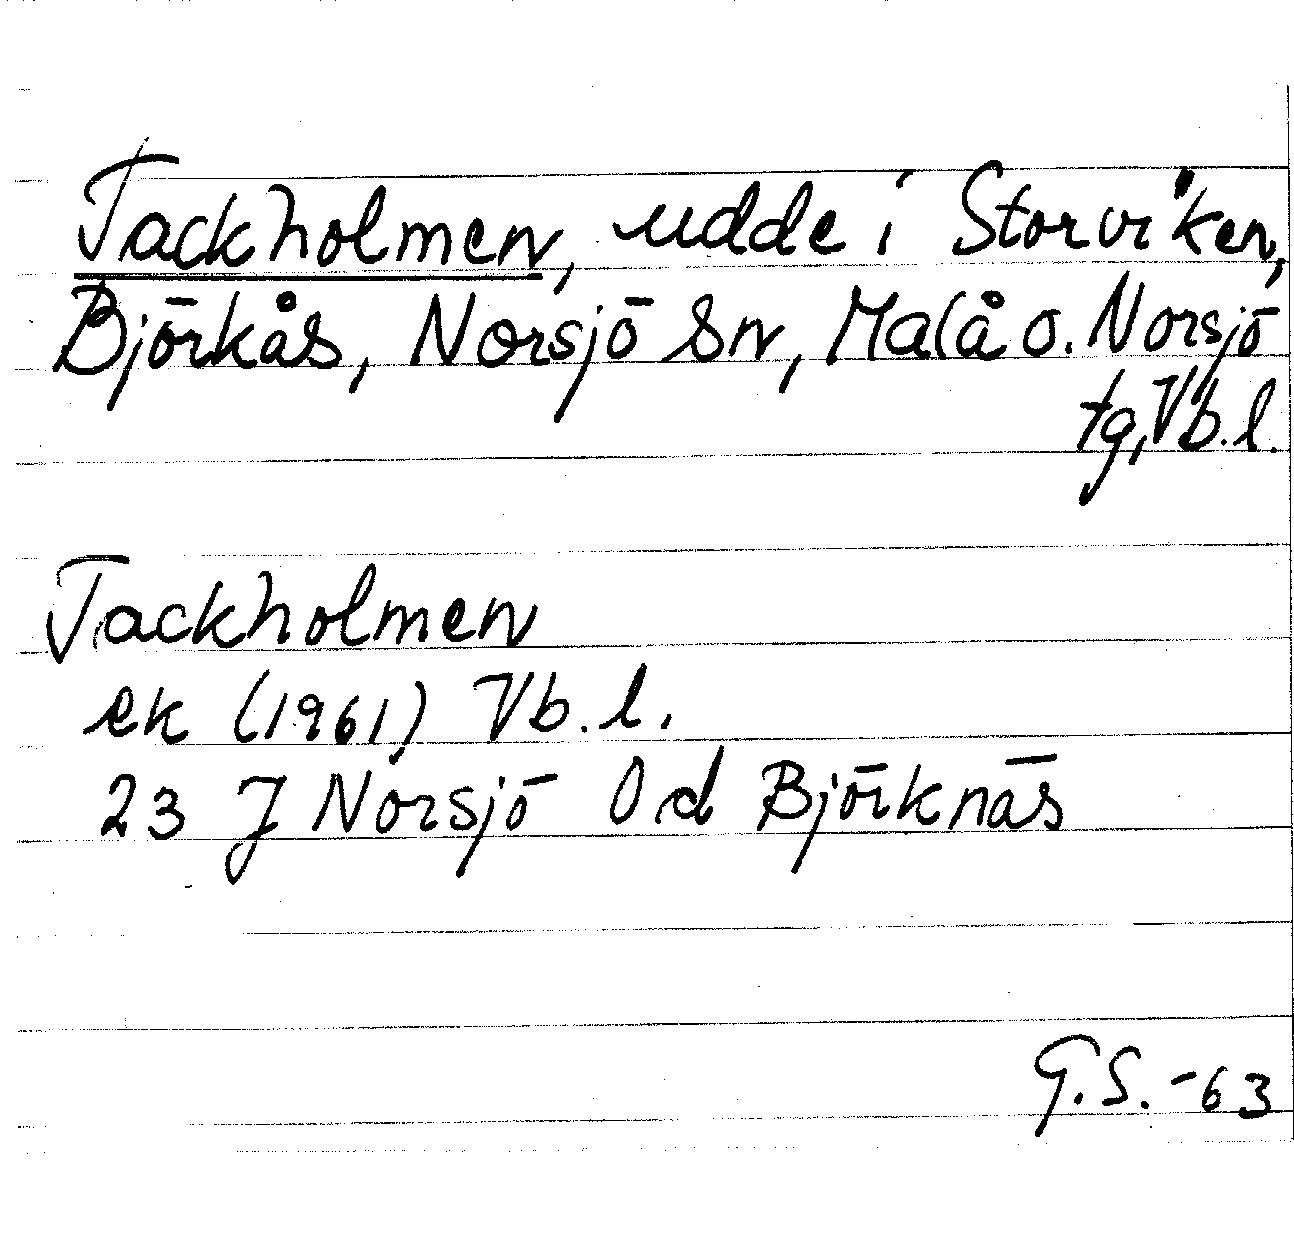 Tackholmen, udde i Storviken,
Björkås, Norsjö sn, Malå o. Norsjö
tg, Vb. l.
Tackholmen
ek (1961) Vb. l.
23 J Norsjö 0 d Björknäs
G.S. -63